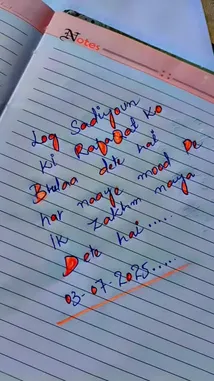 Notes
Log Sadiyoun
Ki Rafaqat Ko
Bhulaa dete hai
har naaye mood Pe
Ik zakhm naya
Dete hai.....
03-07-2025.....